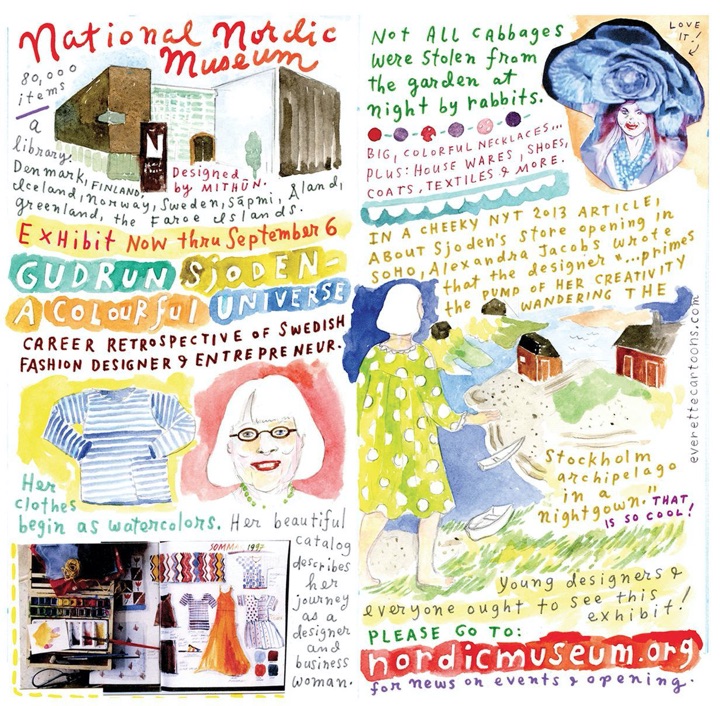 National Nordic
Museum
80,000
items
a
library.
N
Designed
by MITHŪN.
Denmark, FINLAND,
Iceland, Norway, Sweden, Sápmi, Åland,
greenland, the Faroe Islands.
EXHibit Now thru September 6
GUDRUN SJODEN-
A COLOURful UNIVERSE
CAREER RETROSPECTIVE OF SWEDISH
FASHION DESIGNER & ENTREPRENEUR.
Her
clothes
begin as watercolors. Her beautiful
catalog
describes
her
journey
as a
designer
and
business
woman.
SOMMAR 1997
Not All Cabbages
were stolen from
the garden at
night by rabbits.
LOVE
IT!
BIG, COLORFUL NECKLACES...
PLUS: HOUSE WARES, SHOES,
COATS, TEXTILES & MORE.
IN A CHEEKY NYT 2013 ARTICLE,
ABOUT Sjoden's Store opening in
SOHO, Alexandra Jacobs wrote
that the designer "...primes
the PUMP OF HER CREATIVITY
WANDERING THE
Stockholm
archipelago
in a
nightgown." THAT
IS SO COOL!
everettecartoons.com
Young designers &
everyone ought to see this
exhibit!
PLEASE GO TO:
nordicmuseum.org
for news on events & opening.